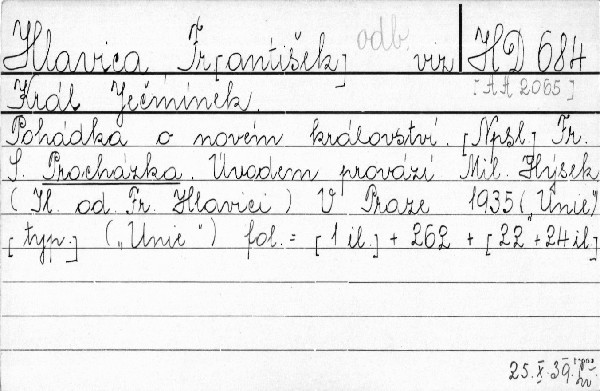 Hlavica Fr[antišek] odb. viz HD 684
Král Ječmínek. [AA 2065]
Pohádka o novém království. [Npsl.] Fr.
S. Procházka. Úvodem provází Mil. Hýsek
(Il. od Fr. Hlavici) V Praze 1935 („Unie")
[typ.] („Unie") fol. = [1 il.] + 262 + [22 + 24 il]
25. X. 39.